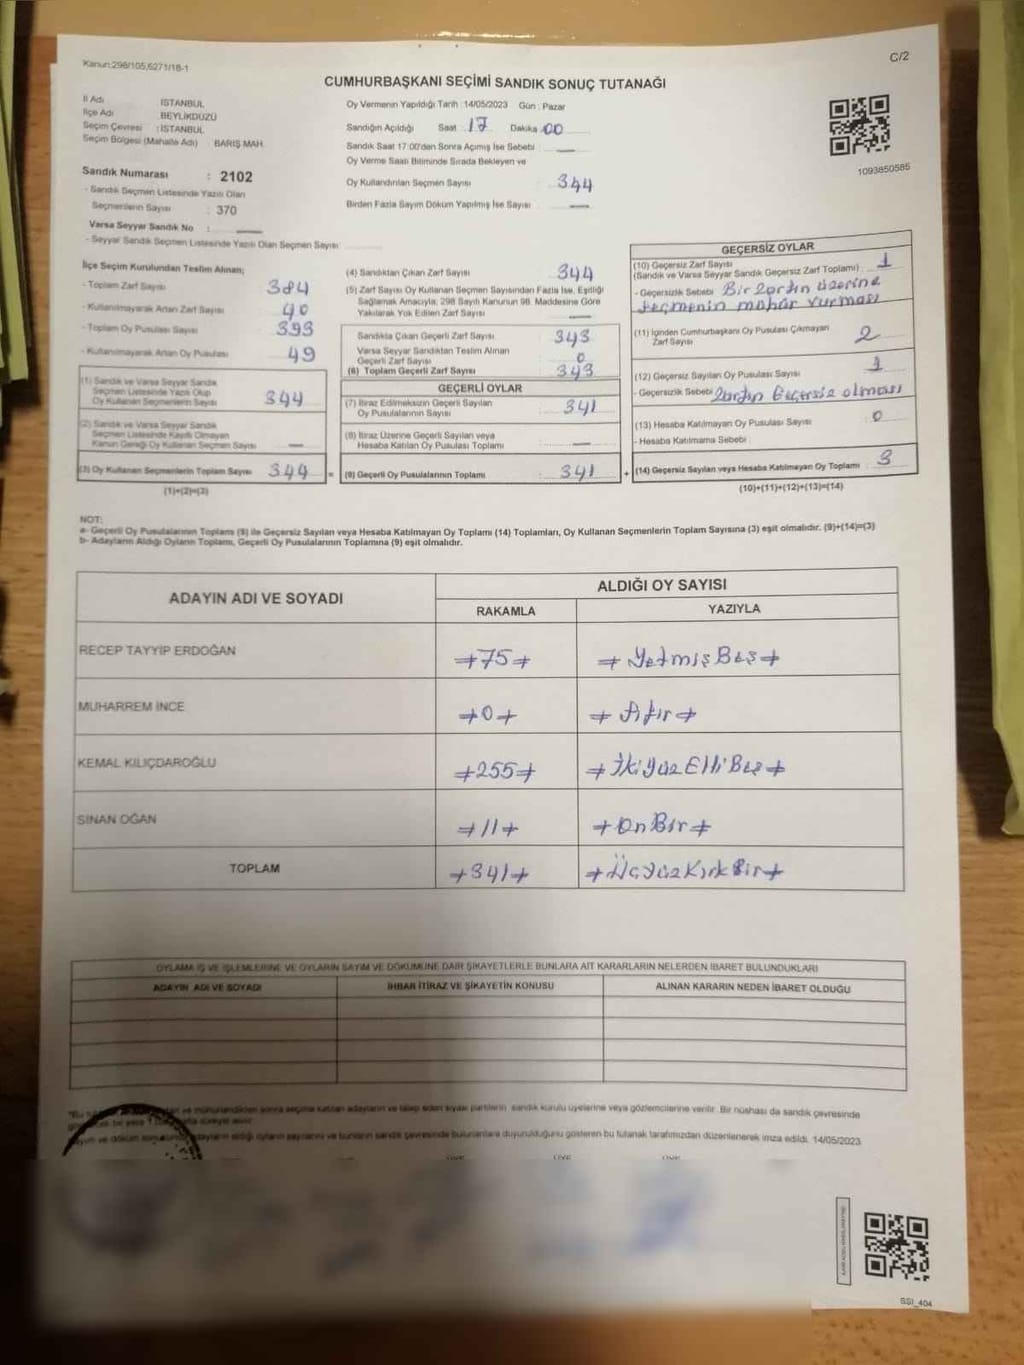 Kanun:298/105,6271/18-1
C/2
CUMHURBAŞKANI SEÇİMİ SANDIK SONUÇ TUTANAĞI
İl Adı : İSTANBUL
İlçe Adı : BEYLİKDÜZÜ
Seçim Çevresi : İSTANBUL
Seçim Bölgesi (Mahalle Adı) BARIŞ MAH.
Sandık Numarası : 2102
- Sandık Seçmen Listesinde Yazılı Olan
Seçmenlerin Sayısı : 370
Varsa Seyyar Sandık No :
- Seyyar Sandık Seçmen Listesinde Yazılı Olan Seçmen Sayısı
Oy Vermenin Yapıldığı Tarih :14/05/2023 Gün : Pazar
Sandığın Açıldığı Saat 17 Dakika 00
Sandık Saat 17:00'den Sonra Açılmış İse Sebebi
Oy Verme Saati Bitiminde Sırada Bekleyen ve
Oy Kullandırılan Seçmen Sayısı 344
Birden Fazla Sayım Döküm Yapılmış İse Sayısı
1093850585
İlçe Seçim Kurulundan Teslim Alınan;
- Toplam Zarf Sayısı 384
- Kullanılmayarak Artan Zarf Sayısı 40
- Toplam Oy Pusulası Sayısı 393
- Kullanılmayarak Artan Oy Pusulası 49
(1) Sandık ve Varsa Seyyar Sandık
Seçmen Listesinde Yazılı Olup
Oy Kullanan Seçmenlerin Sayısı 344
(2) Sandık ve Varsa Seyyar Sandık
Seçmen Listesinde Kayıtlı Olmayan
Kanun Gereği Oy Kullanan Seçmen Sayısı —
(3) Oy Kullanan Seçmenlerin Toplam Sayısı 344 =
(1)+(2)=(3)
(4) Sandıktan Çıkan Zarf Sayısı 344
(5) Zarf Sayısı Oy Kullanan Seçmen Sayısından Fazla İse, Eşitliği
Sağlamak Amacıyla; 298 Sayılı Kanunun 98. Maddesine Göre
Yakılarak Yok Edilen Zarf Sayısı —
Sandıkta Çıkan Geçerli Zarf Sayısı 343
Varsa Seyyar Sandıktan Teslim Alınan
Geçerli Zarf Sayısı 0
(6) Toplam Geçerli Zarf Sayısı 343
GEÇERLİ OYLAR
(7) İtiraz Edilmeksizin Geçerli Sayılan
Oy Pusulalarının Sayısı 341
(8) İtiraz Üzerine Geçerli Sayılan veya
Hesaba Katılan Oy Pusulası Toplamı —
(9) Geçerli Oy Pusulalarının Toplamı 341 +
GEÇERSİZ OYLAR
(10) Geçersiz Zarf Sayısı
(Sandık ve Varsa Seyyar Sandık Geçersiz Zarf Toplamı) 1
- Geçersizlik Sebebi Bir zarfın üzerine
seçmenin mühür vurması
(11) İçinden Cumhurbaşkanı Oy Pusulası Çıkmayan
Zarf Sayısı 2
(12) Geçersiz Sayılan Oy Pusulası Sayısı 1
- Geçersizlik Sebebi Zarfın Geçersiz olması
(13) Hesaba Katılmayan Oy Pusulası Sayısı 0
- Hesaba Katılmama Sebebi
(14) Geçersiz Sayılan veya Hesaba Katılmayan Oy Toplamı 3
(10)+(11)+(12)+(13)=(14)
NOT:
a- Geçerli Oy Pusulalarının Toplamı (9) ile Geçersiz Sayılan veya Hesaba Katılmayan Oy Toplamı (14) Toplamları, Oy Kullanan Seçmenlerin Toplam Sayısına (3) eşit olmalıdır. (9)+(14)=(3)
b- Adayların Aldığı Oyların Toplamı, Geçerli Oy Pusulalarının Toplamına (9) eşit olmalıdır.
ADAYIN ADI VE SOYADI
ALDIĞI OY SAYISI
RAKAMLA YAZIYLA
RECEP TAYYİP ERDOĞAN 75 Yetmiş Beş
MUHARREM İNCE 0 Sıfır
KEMAL KILIÇDAROĞLU 255 İki Yüz Elli Beş
SİNAN OĞAN 11 On Bir
TOPLAM 341 Üç Yüz Kırk Bir
OYLAMA İŞ VE İŞLEMLERİNE VE OYLARIN SAYIM VE DÖKÜMÜNE DAİR ŞİKAYETLERLE BUNLARA AİT KARARLARIN NELERDEN İBARET BULUNDUKLARI
ADAYIN ADI VE SOYADI İHBAR İTİRAZ VE ŞİKAYETİN KONUSU ALINAN KARARIN NEDEN İBARET OLDUĞU
ve mühürlendikten sonra seçime katılan adayların ve talep eden siyasi partilerin sandık kurulu üyelerine veya gözlemcilerine verilir. Bir nüshası da sandık çevresinde
adayların aldığı oyların sayılarını ve bunların sandık çevresinde bulunanlara duyurulduğunu gösteren bu tutanak tarafımızdan düzenlenerek imza edildi. 14/05/2023
SSI_404